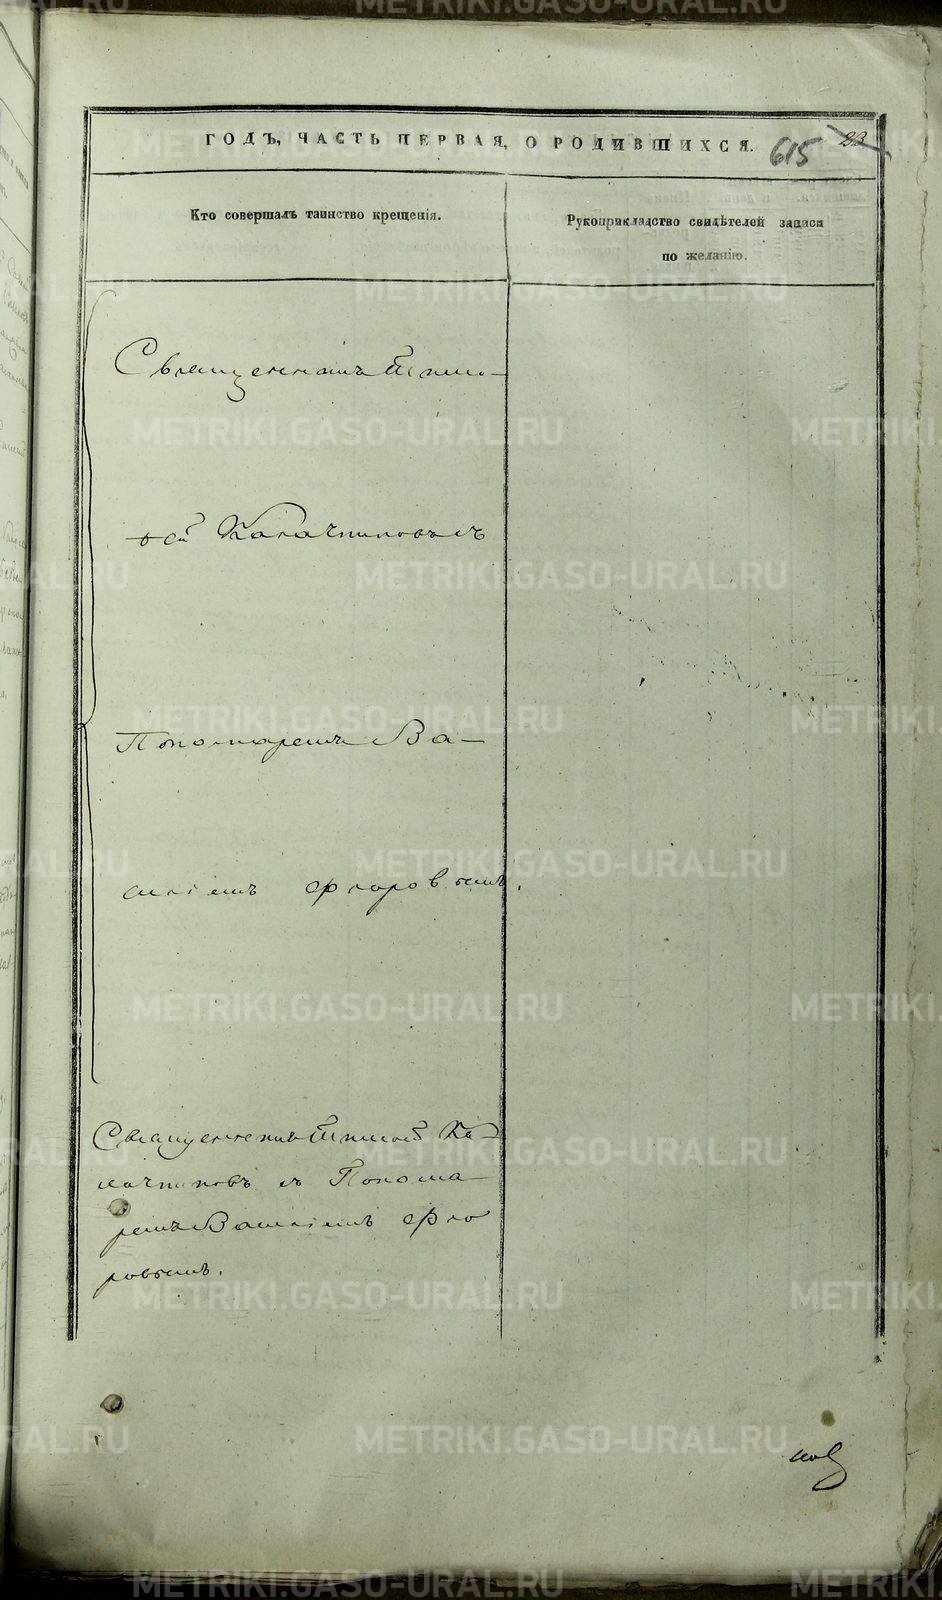 ГОДЪ, ЧАСТЬ ПЕРВАЯ, О РОДИВШИХСЯ.
615
Кто совершалъ таинство крещенія.
Рукоприкладство свидѣтелей записи
по желанію.
Священникъ Тимо-
ѳей Калачниковъ съ
Пономаремъ Ва-
силіемъ Флоровымъ.
Священникъ Тимоѳей Ка-
лачниковъ съ Понома-
ремъ Василіемъ Фло
ровымъ.
METRIKI.GASO-URAL.RU